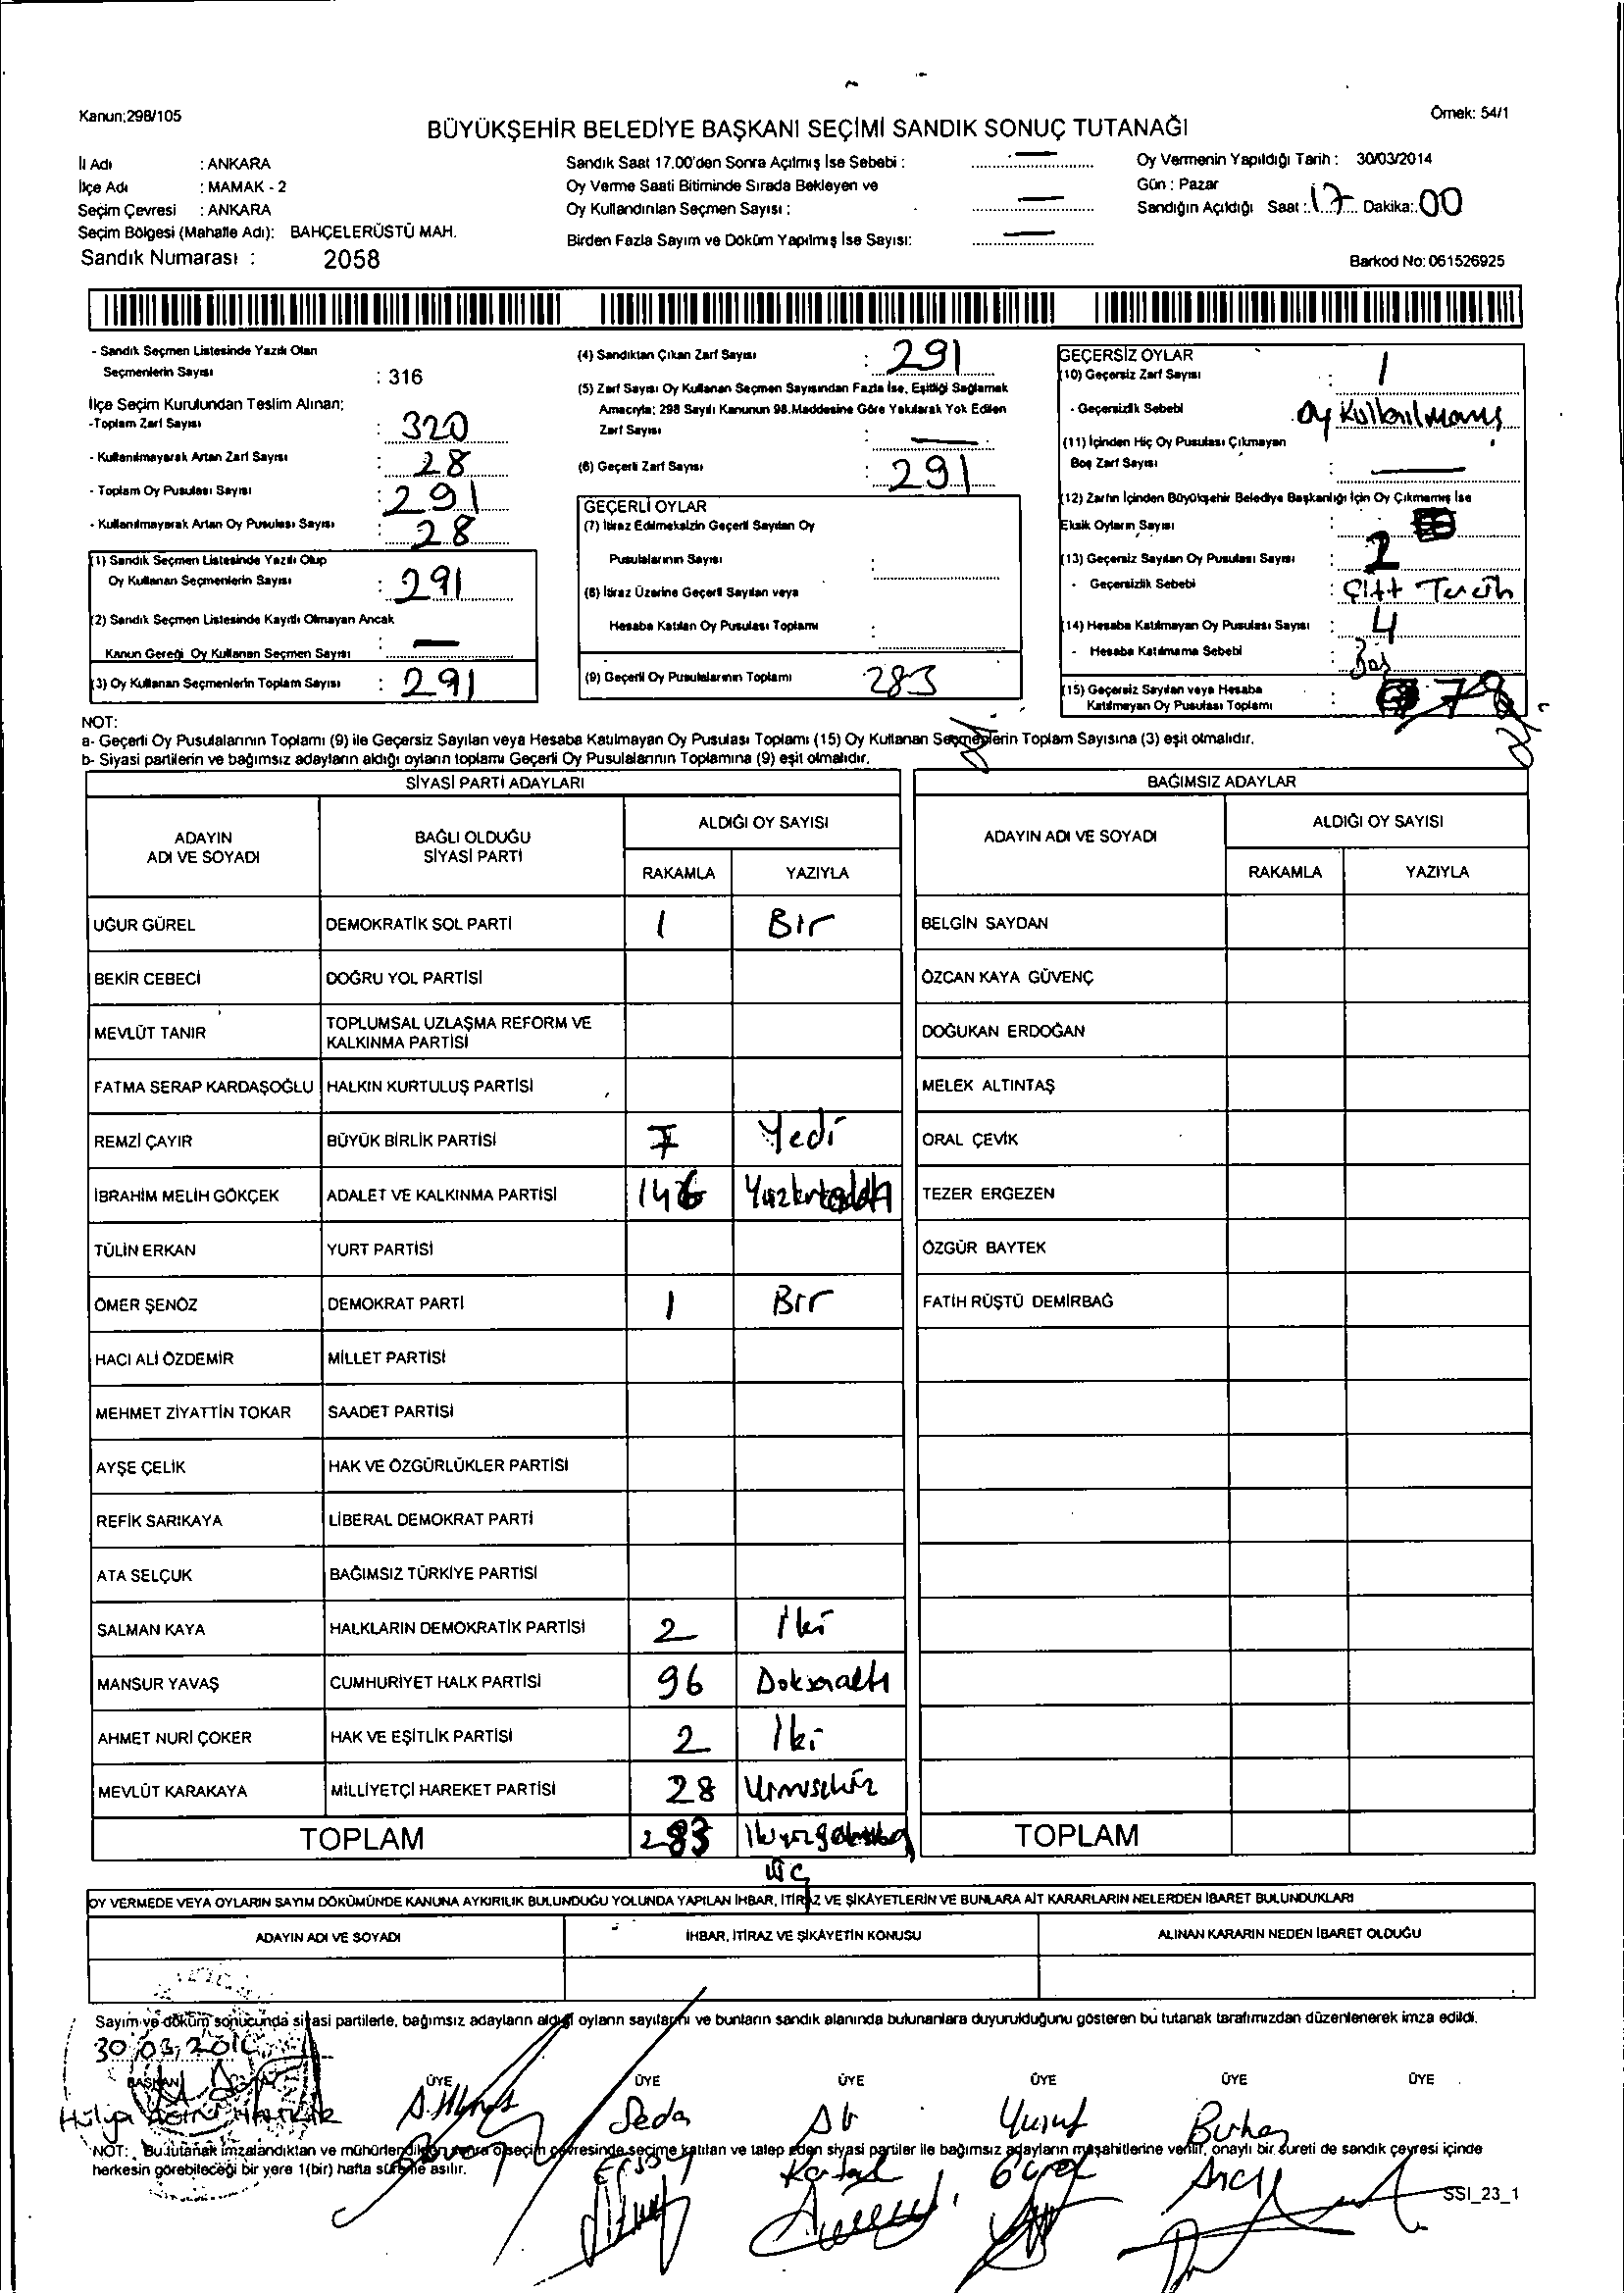 Kanun;298/105
Örnek: 54/1
BÜYÜKŞEHİR BELEDİYE BAŞKANI SEÇİMİ SANDIK SONUÇ TUTANAĞI
İl Adı : ANKARA
İlçe Adı : MAMAK - 2
Seçim Çevresi : ANKARA
Seçim Bölgesi (Mahalle Adı): BAHÇELERÜSTÜ MAH.
Sandık Numarası : 2058
Sandık Saat 17.00'den Sonra Açılmış İse Sebebi : —
Oy Verme Saati Bitiminde Sırada Bekleyen ve
Oy Kullandırılan Seçmen Sayısı : —
Birden Fazla Sayım ve Döküm Yapılmış İse Sayısı: —
Oy Vermenin Yapıldığı Tarih : 30/03/2014
Gün : Pazar
Sandığın Açıldığı Saat : 17 Dakika: 00
Barkod No: 061526925
- Sandık Seçmen Listesinde Yazılı Olan
Seçmenlerin Sayısı : 316
İlçe Seçim Kurulundan Teslim Alınan;
-Toplam Zarf Sayısı : 320
- Kullanılmayarak Artan Zarf Sayısı : 28
- Toplam Oy Pusulası Sayısı : 291
- Kullanılmayarak Artan Oy Pusulası Sayısı : 28
(1) Sandık Seçmen Listesinde Yazılı Olup
Oy Kullanan Seçmenlerin Sayısı : 291
(2) Sandık Seçmen Listesinde Kayıtlı Olmayan Ancak
Kanun Gereği Oy Kullanan Seçmen Sayısı : —
(3) Oy Kullanan Seçmenlerin Toplam Sayısı : 291
(4) Sandıktan Çıkan Zarf Sayısı : 291
(5) Zarf Sayısı Oy Kullanan Seçmen Sayısından Fazla İse, Eşitliği Sağlamak
Amacıyla; 298 Sayılı Kanunun 98.Maddesine Göre Yakılarak Yok Edilen
Zarf Sayısı : —
(6) Geçerli Zarf Sayısı : 291
GEÇERLİ OYLAR
(7) İtiraz Edilmeksizin Geçerli Sayılan Oy
Pusulalarının Sayısı :
(8) İtiraz Üzerine Geçerli Sayılan veya
Hesaba Katılan Oy Pusulası Toplamı :
(9) Geçerli Oy Pusulalarının Toplamı 283
GEÇERSİZ OYLAR
(10) Geçersiz Zarf Sayısı : 1
- Geçersizlik Sebebi : oy Kullanılmamış
(11) İçinden Hiç Oy Pusulası Çıkmayan
Boş Zarf Sayısı : —
(12) Zarfın İçinden Büyükşehir Belediye Başkanlığı İçin Oy Çıkmamış İse
Eksik Oyların Sayısı :
(13) Geçersiz Sayılan Oy Pusulası Sayısı : 2
- Geçersizlik Sebebi : Çift Tercih
(14) Hesaba Katılmayan Oy Pusulası Sayısı : 4
- Hesaba Katılmama Sebebi : Boş
(15) Geçersiz Sayılan veya Hesaba
Katılmayan Oy Pusulası Toplamı :
NOT:
a- Geçerli Oy Pusulalarının Toplamı (9) ile Geçersiz Sayılan veya Hesaba Katılmayan Oy Pusulası Toplamı (15) Oy Kullanan Seçmenlerin Toplam Sayısına (3) eşit olmalıdır.
b- Siyasi partilerin ve bağımsız adayların aldığı oyların toplamı Geçerli Oy Pusulalarının Toplamına (9) eşit olmalıdır.
SİYASİ PARTİ ADAYLARI
ADAYIN
ADI VE SOYADI
BAĞLI OLDUĞU
SİYASİ PARTİ
ALDIĞI OY SAYISI
RAKAMLA YAZIYLA
UĞUR GÜREL DEMOKRATİK SOL PARTİ 1 Bir
BEKİR CEBECİ DOĞRU YOL PARTİSİ
MEVLÜT TANIR TOPLUMSAL UZLAŞMA REFORM VE
KALKINMA PARTİSİ
FATMA SERAP KARDAŞOĞLU HALKIN KURTULUŞ PARTİSİ
REMZİ ÇAYIR BÜYÜK BİRLİK PARTİSİ 7 Yedi
İBRAHİM MELİH GÖKÇEK ADALET VE KALKINMA PARTİSİ 146 Yüzkırkaltı
TÜLİN ERKAN YURT PARTİSİ
ÖMER ŞENÖZ DEMOKRAT PARTİ 1 Bir
HACI ALİ ÖZDEMİR MİLLET PARTİSİ
MEHMET ZİYATTİN TOKAR SAADET PARTİSİ
AYŞE ÇELİK HAK VE ÖZGÜRLÜKLER PARTİSİ
REFİK SARIKAYA LİBERAL DEMOKRAT PARTİ
ATA SELÇUK BAĞIMSIZ TÜRKİYE PARTİSİ
SALMAN KAYA HALKLARIN DEMOKRATİK PARTİSİ 2 İki
MANSUR YAVAŞ CUMHURİYET HALK PARTİSİ 96 Doksanaltı
AHMET NURİ ÇÖKER HAK VE EŞİTLİK PARTİSİ 2 İki
MEVLÜT KARAKAYA MİLLİYETÇİ HAREKET PARTİSİ 28 Yirmisekiz
TOPLAM 283 İkiyüzseksen
üç
BAĞIMSIZ ADAYLAR
ADAYIN ADI VE SOYADI
ALDIĞI OY SAYISI
RAKAMLA YAZIYLA
BELGİN SAYDAN
ÖZCAN KAYA GÜVENÇ
DOĞUKAN ERDOĞAN
MELEK ALTINTAŞ
ORAL ÇEVİK
TEZER ERGEZEN
ÖZGÜR BAYTEK
FATİH RÜŞTÜ DEMİRBAĞ
TOPLAM
OY VERMEDE VEYA OYLARIN SAYIM DÖKÜMÜNDE KANUNA AYKIRILIK BULUNDUĞU YOLUNDA YAPILAN İHBAR, İTİRAZ VE ŞİKAYETLERİN VE BUNLARA AİT KARARLARIN NELERDEN İBARET BULUNDUKLARI
ADAYIN ADI VE SOYADI İHBAR, İTİRAZ VE ŞİKAYETİN KONUSU ALINAN KARARIN NEDEN İBARET OLDUĞU
Sayım ve döküm sonucunda siyasi partilerle, bağımsız adayların aldığı oyların sayılarını ve bunların sandık alanında bulunanlara duyurulduğunu gösteren bu tutanak tarafımızdan düzenlenerek imza edildi.
30.03.2014
BAŞKAN ÜYE ÜYE ÜYE ÜYE ÜYE ÜYE
Hülya Seda Yusuf Burhan
NOT: Bu tutanak imzalandıktan ve mühürlendikten sonra o seçim çevresinde seçime katılan ve talep eden siyasi partiler ile bağımsız adayların müşahitlerine verilir, onaylı bir sureti de sandık çevresi içinde
herkesin görebileceği bir yere 1(bir) hafta süreyle asılır.
SSI_23_1